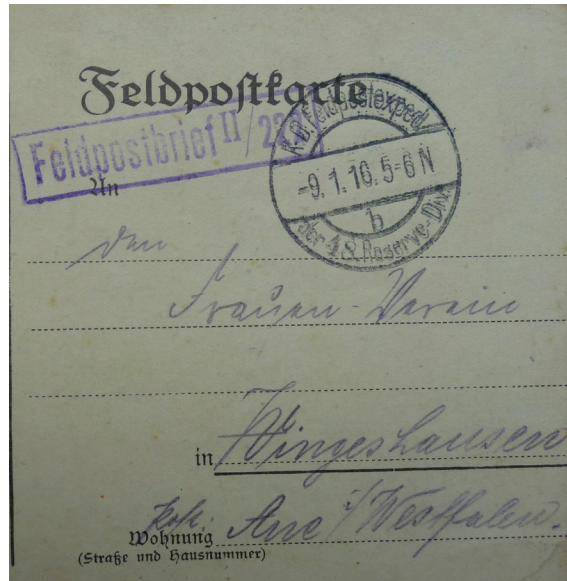 Feldpostkarte
Feldpostbrief II/22
K.D. Feldpostexped.
-9.1.16. 5-6 N
b
der 48. Reserve-Div.
An
den
Frauen-Verein
in Wingeshausen
Post: Aue i/Westfalen.
Wohnung
(Straße und Hausnummer)